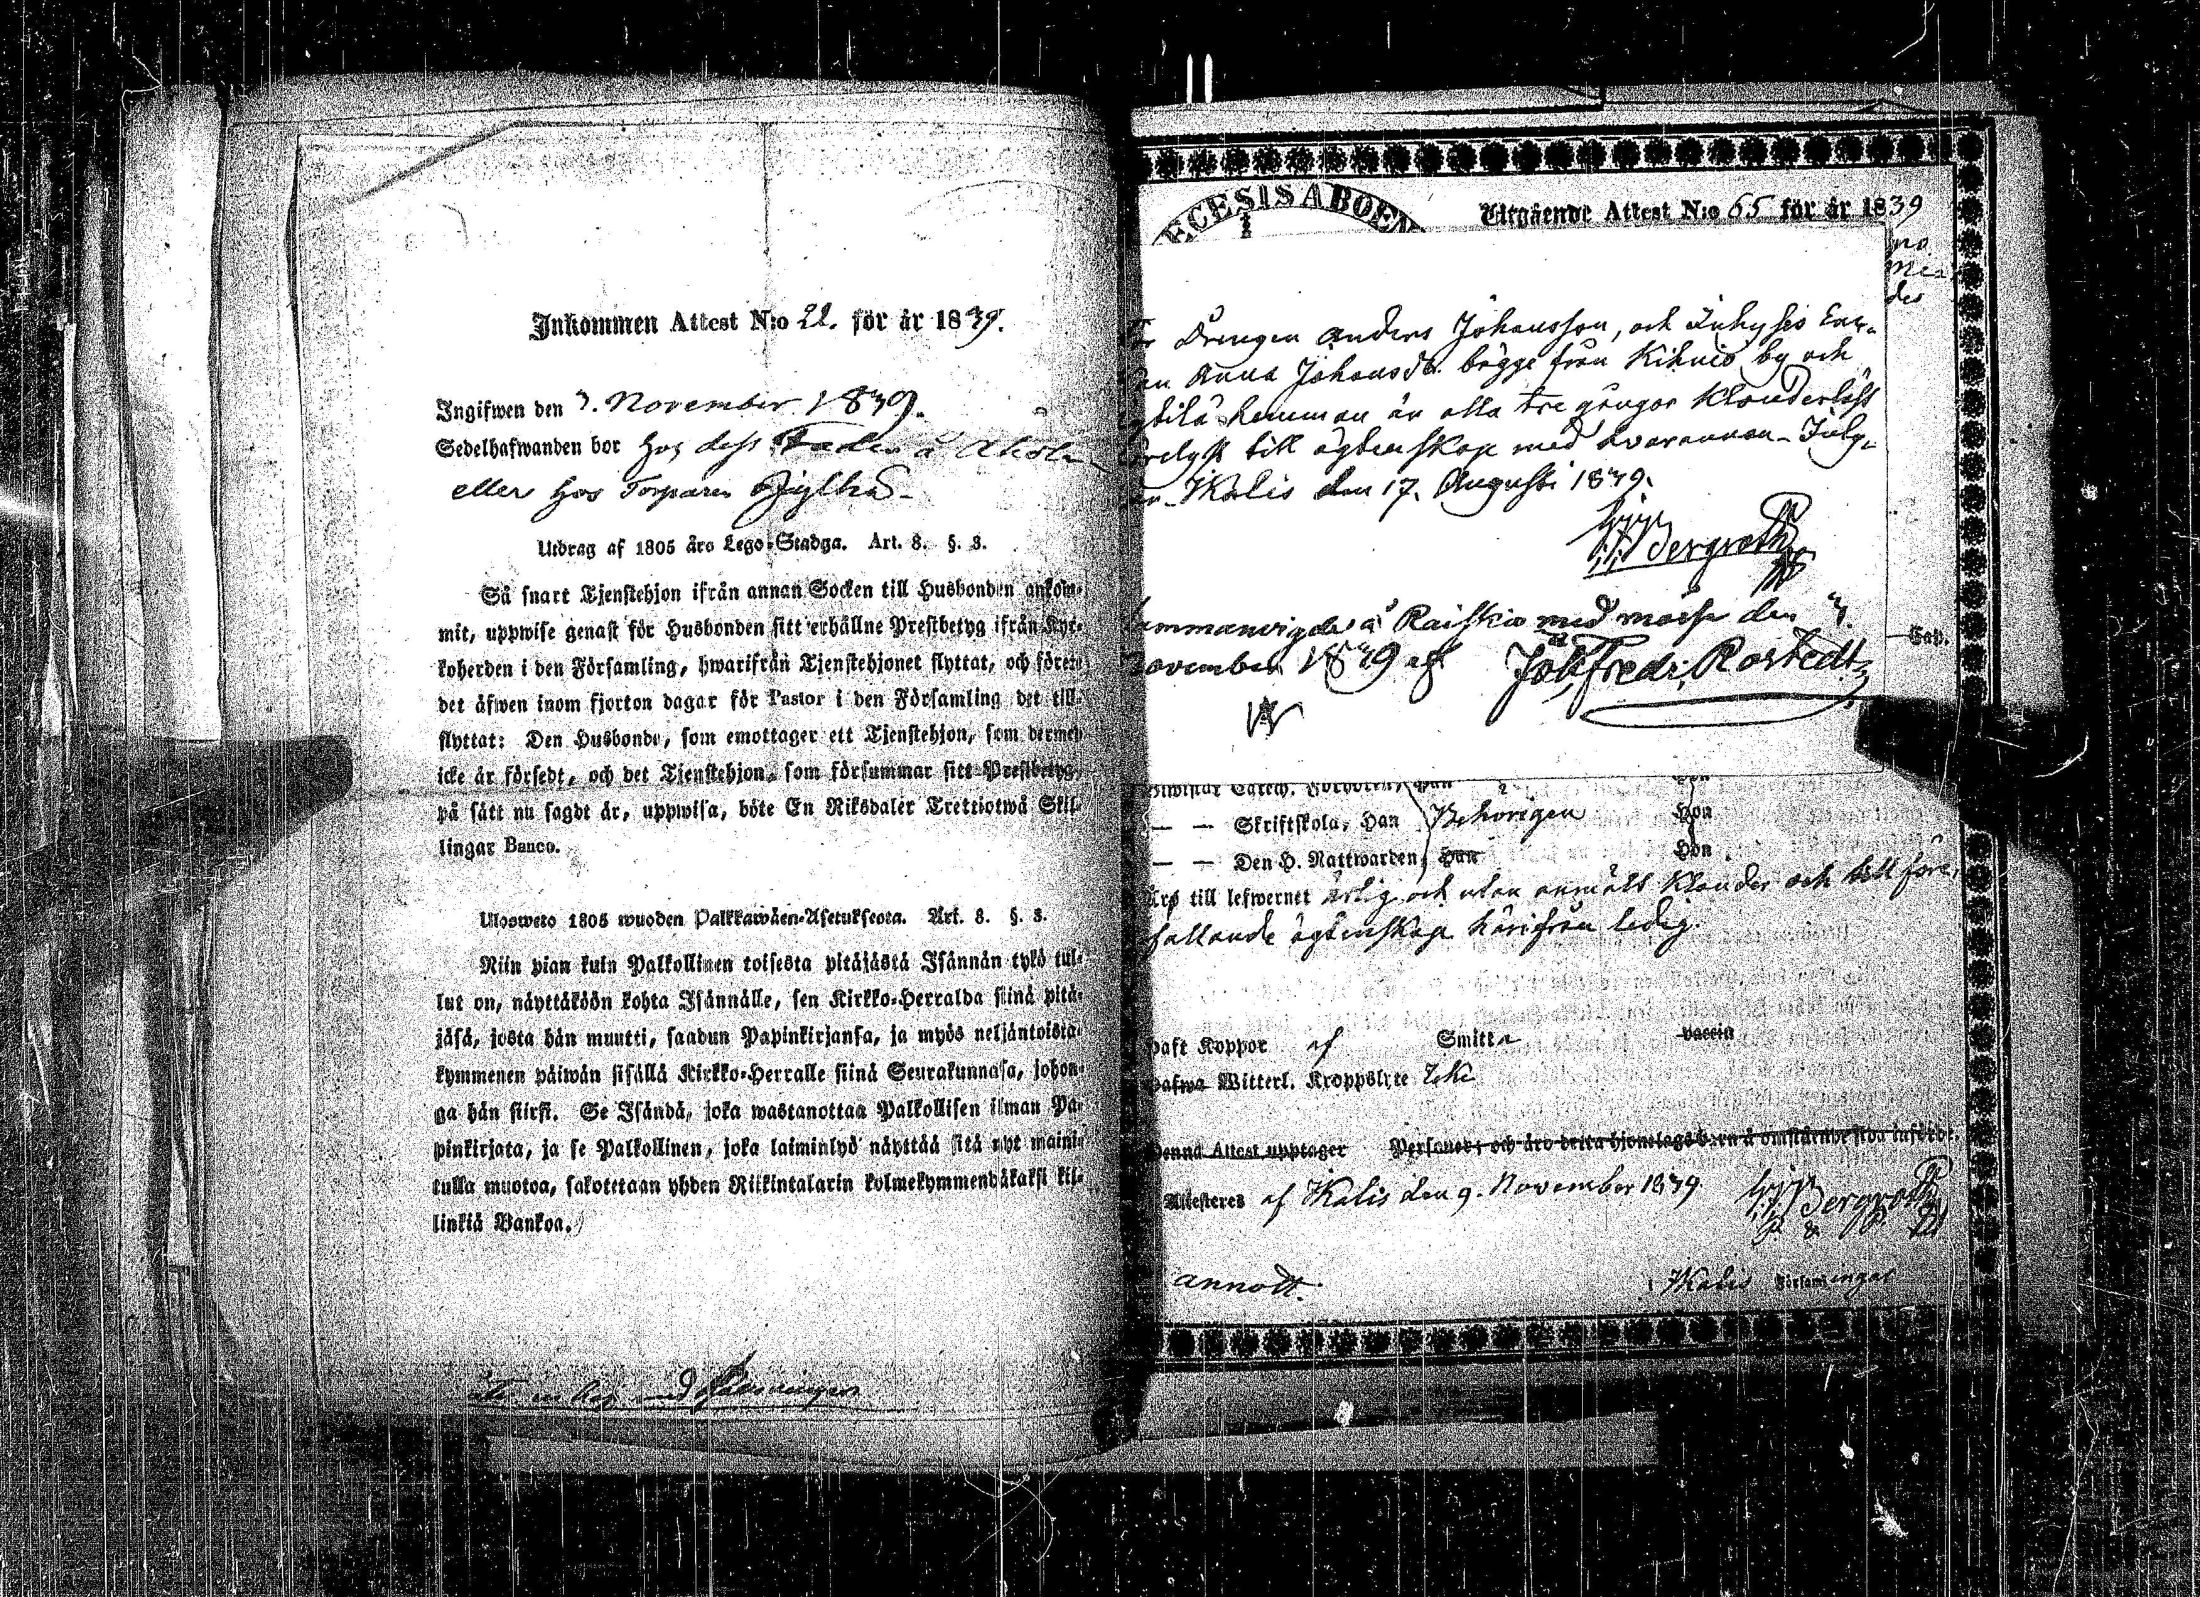 Inkommen Attest N:o 22. för år 1839.
Ingifwen den 7. November 1839.
Sedelhafwanden bor hos dess Fader å
eller hos Torparen Jylhä
Utdrag af 1805 års Lego-Stadga. Art. 8. §. 3.
Så snart Tjenstehjon ifrån annan Socken till Husbonden ankom-
mit, uppwise genast för Husbonden sitt erhållne Prestbetyg ifrån Kyr-
koherden i den Församling, hwarifrån Tjenstehjonet flyttat, och förete
det äfwen inom fjorton dagar för Pastor i den Församling det till-
flyttat: Den Husbonde, som emottager ett Tjenstehjon, som dermed
icke är försedt, och det Tjenstehjon, som försummar sitt Prestbetyg,
på sätt nu sagdt är, uppwisa, böte En Riksdaler Trettiotwå Skil-
lingar Banco.
Ulosweto 1805 wuoden Palkkawäen-Asetuksesta. Art. 8. §. 3.
Niin pian kuin Palkollinen toisesta pitäjästä Isännän tykö tul-
lut on, näyttäköön kohta Isännälle, sen Kirkko-Herralda siinä pitä-
jäsä, josta hän muutti, saadun Papinkirjansa, ja myös neljäntoista-
kymmenen päiwän sisällä Kirkko-Herralle siinä Seurakunnasa, johon-
ga hän siirsi. Se Isändä, joka wastanottaa Palkollisen ilman Pa-
pinkirjata, ja se Palkollinen, joka laiminlyö näyttää sitä nyt maini-
tulla muotoa, sakotetaan yhden Riikintalarin kolmekymmendäkaksi kil-
linkiä Bankoa.
ECESIS ABOEN
Utgående Attest N:o 65 för år 1839
Drengen Anders Johansson, och Inhyses
Anna Johansdr. bägge från Kihniö by och
hemman är alla tre gångor klanderlöst
lyst till ägtenskap med hvarannan
Ikalis den 17. Augusti 1839.
Bergroth
Sammanvigde å Raiskio med massa den 7.
November 1839 af Joh. Fredr. Rostedt
Tab.
— — Skriftskola, Han Behörigen Hon
— — Den H. Nattwarden, Han Hon
till lefwernet ärlig och utan anmält klander och till före-
fallande ägtenskap härifrån ledig.
haft Koppor af Smitta vaccin
hafwa Witterl. Kroppslyte Icke
Denna Attest upptager Personer, och äro detta hjonelags barn å omstående sida införde.
Attesteres af Ikalis den 9. November 1839. Bergroth
annott. Ikalis Församlingar